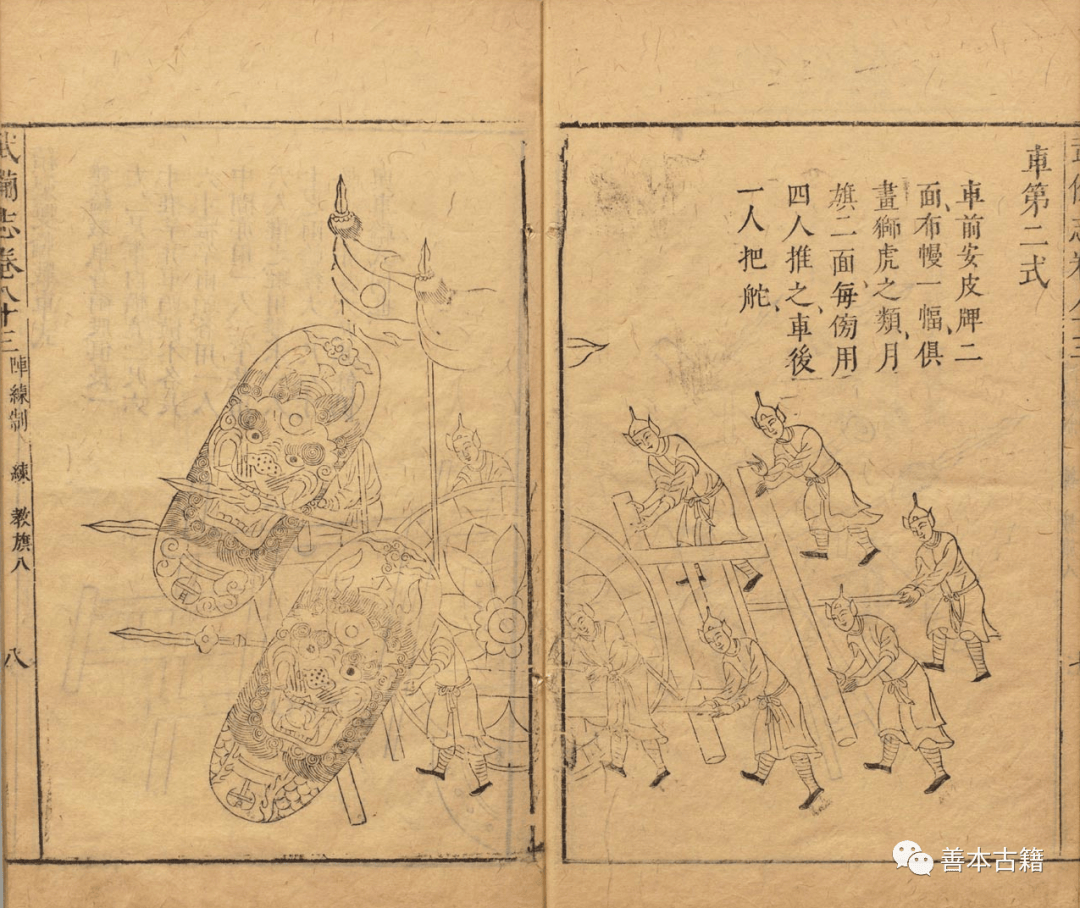 車第二式
車前安皮牌二
面布幔一幅俱
畫獅虎之類月
旗二面每傍用
四人推之車後
一人把舵
武備志卷八十三 陣練制 練 教旗八
八
善本古籍